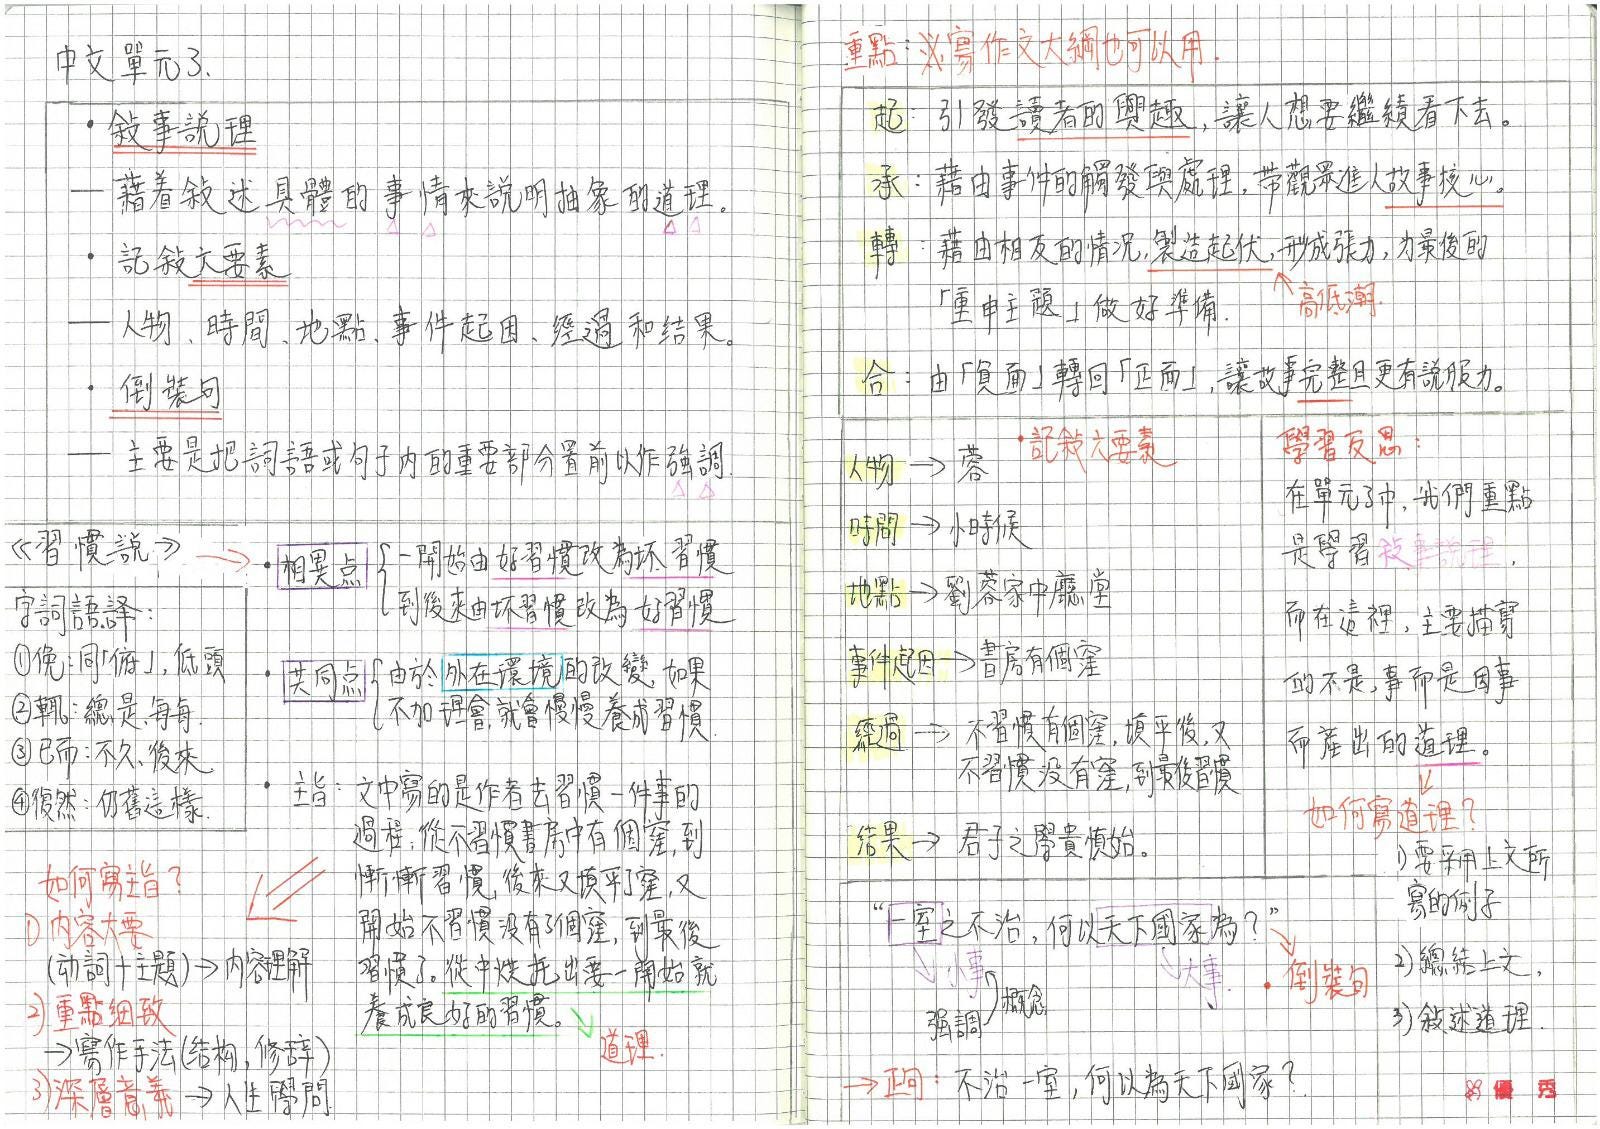 中文單元3.
• 敍事説理
— 藉着敍述具體的事情來説明抽象的道理。
• 記敍六要素
— 人物、時間、地點、事件起因、經過和结果。
• 倒裝句
— 主要是把詞語或句子內的重要部分置前以作強調.
《習慣説》
• 相異点
一開始由好習慣改為坏習慣
到後來由坏習慣改為好習慣
字詞語譯:
①俛:同「俯」,低頭
②輒:總是,每每.
③已而:不久、後來
④復然:仍舊這樣.
• 共同点
由於外在環境的改變,如果
不加理會就會慢慢養成習慣.
• 主旨:文中寫的是作者去習慣一件事的
過程:從不習慣書房中有個窪,到
慚慚習慣,後來又填平了窪,又
開始不習慣没有了個窪,到最後
習慣了。從中烘托出要一開始就
養成良好的習慣。
道理.
如何寫主旨?
1)内容大要
(动詞+主題)→内容理解
2)重點細致
→寫作手法(结构,修辞)
3)深層意義→人生學問
重點:必寫作文大綱也可以用.
起:引發讀者的興趣,讓人想要繼續看下去。
承:藉由事件的觸發與處理,带觀眾進入故事核心。
轉:藉由相反的情况,製造起伏,形成張力,为最後的
「重申主題」做好準備.
高低潮.
合:由「負面」轉回「正面」,讓故事完整且更有説服力。
• 記敍六要素
人物→蓉
時間→小時候
地點→劉蓉家中廳堂
事件起因→書房有個窪
經過→不習慣有個窪,填平後,又
不習慣没有窪,到最後習慣
结果→君子之學貴慎始。
學習反思:
在單元3中,我們重點
是學習敍事說理,
而在這裡,主要描寫
的不是,事而是因事
而產出的道理。
如何寫道理?
1)要采用上文所
寫的例子
2)總結上文,
3)敍述道理.
“一室之不治,何以天下國家為?”
小事
大事.
• 倒裝句
強調
概念
→正向:不治一室,何以為天下國家?
優 秀